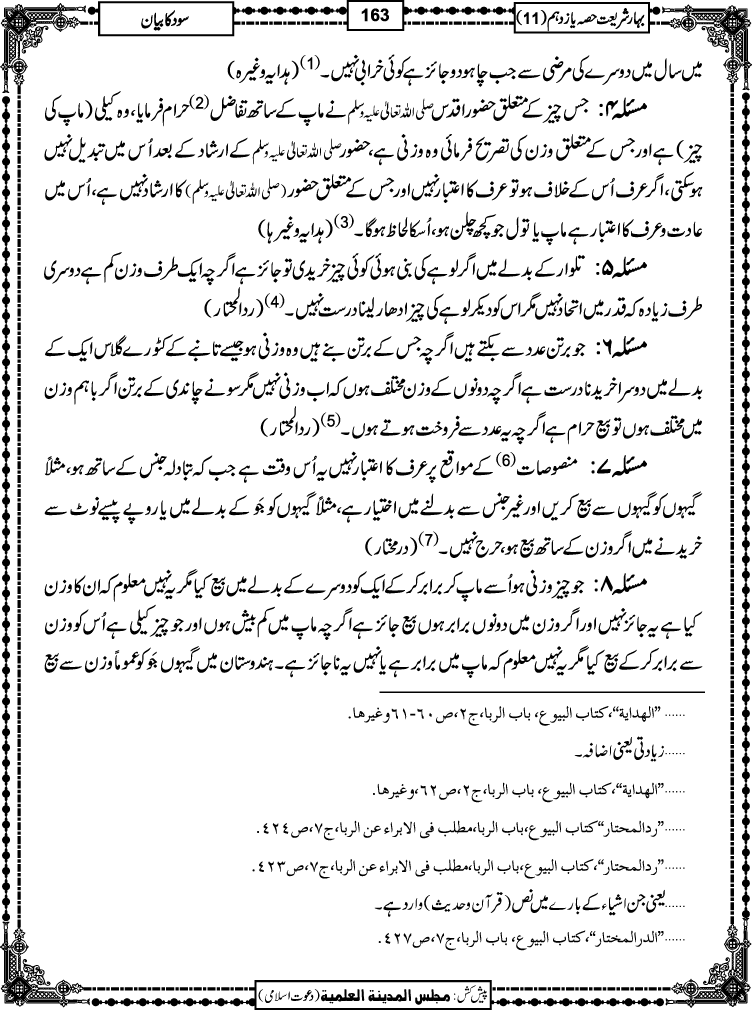 بہارِ شریعت حصہ یازدہم (11)
163
سود کا بیان
میں سال میں دوسرے کی مرضی سے جب چاہو دو جائز ہے کوئی خرابی نہیں۔(1) (ہدایہ وغیرہ)
مسئلہ ۴: جس چیز کے متعلق حضور اقدس صلی اللہ تعالیٰ علیہ وسلم نے ماپ کے ساتھ تفاضل(2) حرام فرمایا، وہ کیلی (ماپ کی
چیز) ہے اور جس کے متعلق وزن کی تصریح فرمائی وہ وزنی ہے، حضور صلی اللہ تعالیٰ علیہ وسلم کے ارشاد کے بعد اُس میں تبدیل نہیں
ہوسکتی، اگر عرف اُس کے خلاف ہو تو عرف کا اعتبار نہیں اور جس کے متعلق حضور (صلی اللہ تعالیٰ علیہ وسلم) کا ارشاد نہیں ہے، اُس میں
عادت وعرف کا اعتبار ہے ماپ یا تول جو کچھ چلن ہو، اُسکا لحاظ ہوگا۔(3) (ہدایہ وغیرہا)
مسئلہ ۵: تلوار کے بدلے میں اگر لوہے کی بنی ہوئی کوئی چیز خریدی تو جائز ہے اگرچہ ایک طرف وزن کم ہے دوسری
طرف زیادہ کہ قدر میں اتحاد نہیں مگر اس کو دیکر لوہے کی چیز ادھار لینا درست نہیں۔(4) (ردالمحتار)
مسئلہ ۶: جو برتن عدد سے بکتے ہیں اگرچہ جس کے برتن بنے ہیں وہ وزنی ہو جیسے تانبے کے کٹورے گلاس ایک کے
بدلے میں دوسرا خریدنا درست ہے اگرچہ دونوں کے وزن مختلف ہوں کہ اب وزنی نہیں مگر سونے چاندی کے برتن اگر باہم وزن
میں مختلف ہوں تو بیع حرام ہے اگرچہ یہ عدد سے فروخت ہوتے ہوں۔(5) (ردالمحتار)
مسئلہ ۷: منصوصات(6) کے مواقع پر عرف کا اعتبار نہیں یہ اُس وقت ہے جب کہ تبادلہ جنس کے ساتھ ہو، مثلاً
گیہوں کو گیہوں سے بیع کریں اور غیر جنس سے بدلنے میں اختیار ہے، مثلاً گیہوں کو جَو کے بدلے میں یا روپے پیسے نوٹ سے
خریدنے میں اگر وزن کے ساتھ بیع ہو، حرج نہیں۔(7) (درمختار)
مسئلہ ۸: جو چیز وزنی ہو اُسے ماپ کر برابر کرکے ایک کو دوسرے کے بدلے میں بیع کیا مگر یہ نہیں معلوم کہ ان کا وزن
کیا ہے یہ جائز نہیں اور اگر وزن میں دونوں برابر ہوں بیع جائز ہے اگرچہ ماپ میں کم بیش ہوں اور جو چیز کیلی ہے اُس کو وزن
سے برابر کرکے بیع کیا مگر یہ نہیں معلوم کہ ماپ میں برابر ہے یا نہیں یہ ناجائز ہے۔ ہندوستان میں گیہوں جَو کو عموماً وزن سے بیع
......"الهداية"، كتاب البيوع، باب الربا، ج٢، ص٦٠-٦١ وغيرها.
......زیادتی یعنی اضافہ۔
......"الهداية"، كتاب البيوع، باب الربا، ج٢، ص٦٢، وغيرها.
......"ردالمحتار" كتاب البيوع، باب الربا، مطلب فی الابراء عن الربا، ج٧، ص٤٢٤.
......"ردالمحتار"، كتاب البيوع، باب الربا، مطلب فی الابراء عن الربا، ج٧، ص٤٢٣.
......یعنی جن اشیاء کے بارے میں نص (قرآن وحدیث) وارد ہے۔
......"الدرالمختار"، كتاب البيوع، باب الربا، ج٧، ص٤٢٧.
پیش کش: مجلس المدينة العلمية (دعوت اسلامی)